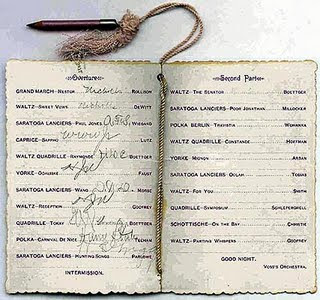 Overture
GRAND MARCH—NESTOR ROLLISON
WALTZ—SWEET VOWS DEWITT
SARATOGA LANCIERS—PAUL JONES WIEGAND
CAPRICE—SAPPHO LUTZ
WALTZ QUADRILLE—RAYMONDE BOETTGER
YORKE—ODALISQUE FAUST
SARATOGA LANCIERS—WANG MORSE
WALTZ—RECEPTION GODFREY
QUADRILLE—TOKAY BOETTGER
POLKA—CARNIVAL DE NICE
SARATOGA LANCIERS—HUNTING SONGS PARLOWE
INTERMISSION.
Second Part
WALTZ—THE SENATOR BOETTGER
SARATOGA LANCIERS—POOR JONATHAN MILLOCKER
POLKA BERLIN—TRAVIATA WOHANKA
WALTZ QUADRILLE—CONSTANCE HOFFMAN
YORKE—MIGNON ARDAN
SARATOGA LANCIERS—OOLAH TOBANI
WALTZ—FOR YOU SMITH
QUADRILLE—SYMPOSIUM SCHLEPEGRELL
SCHOTTISCHE—ON THE BAY CHRISTIE
WALTZ—PARTING WHISPERS GODFREY
GOOD NIGHT.
VOSE'S ORCHESTRA.